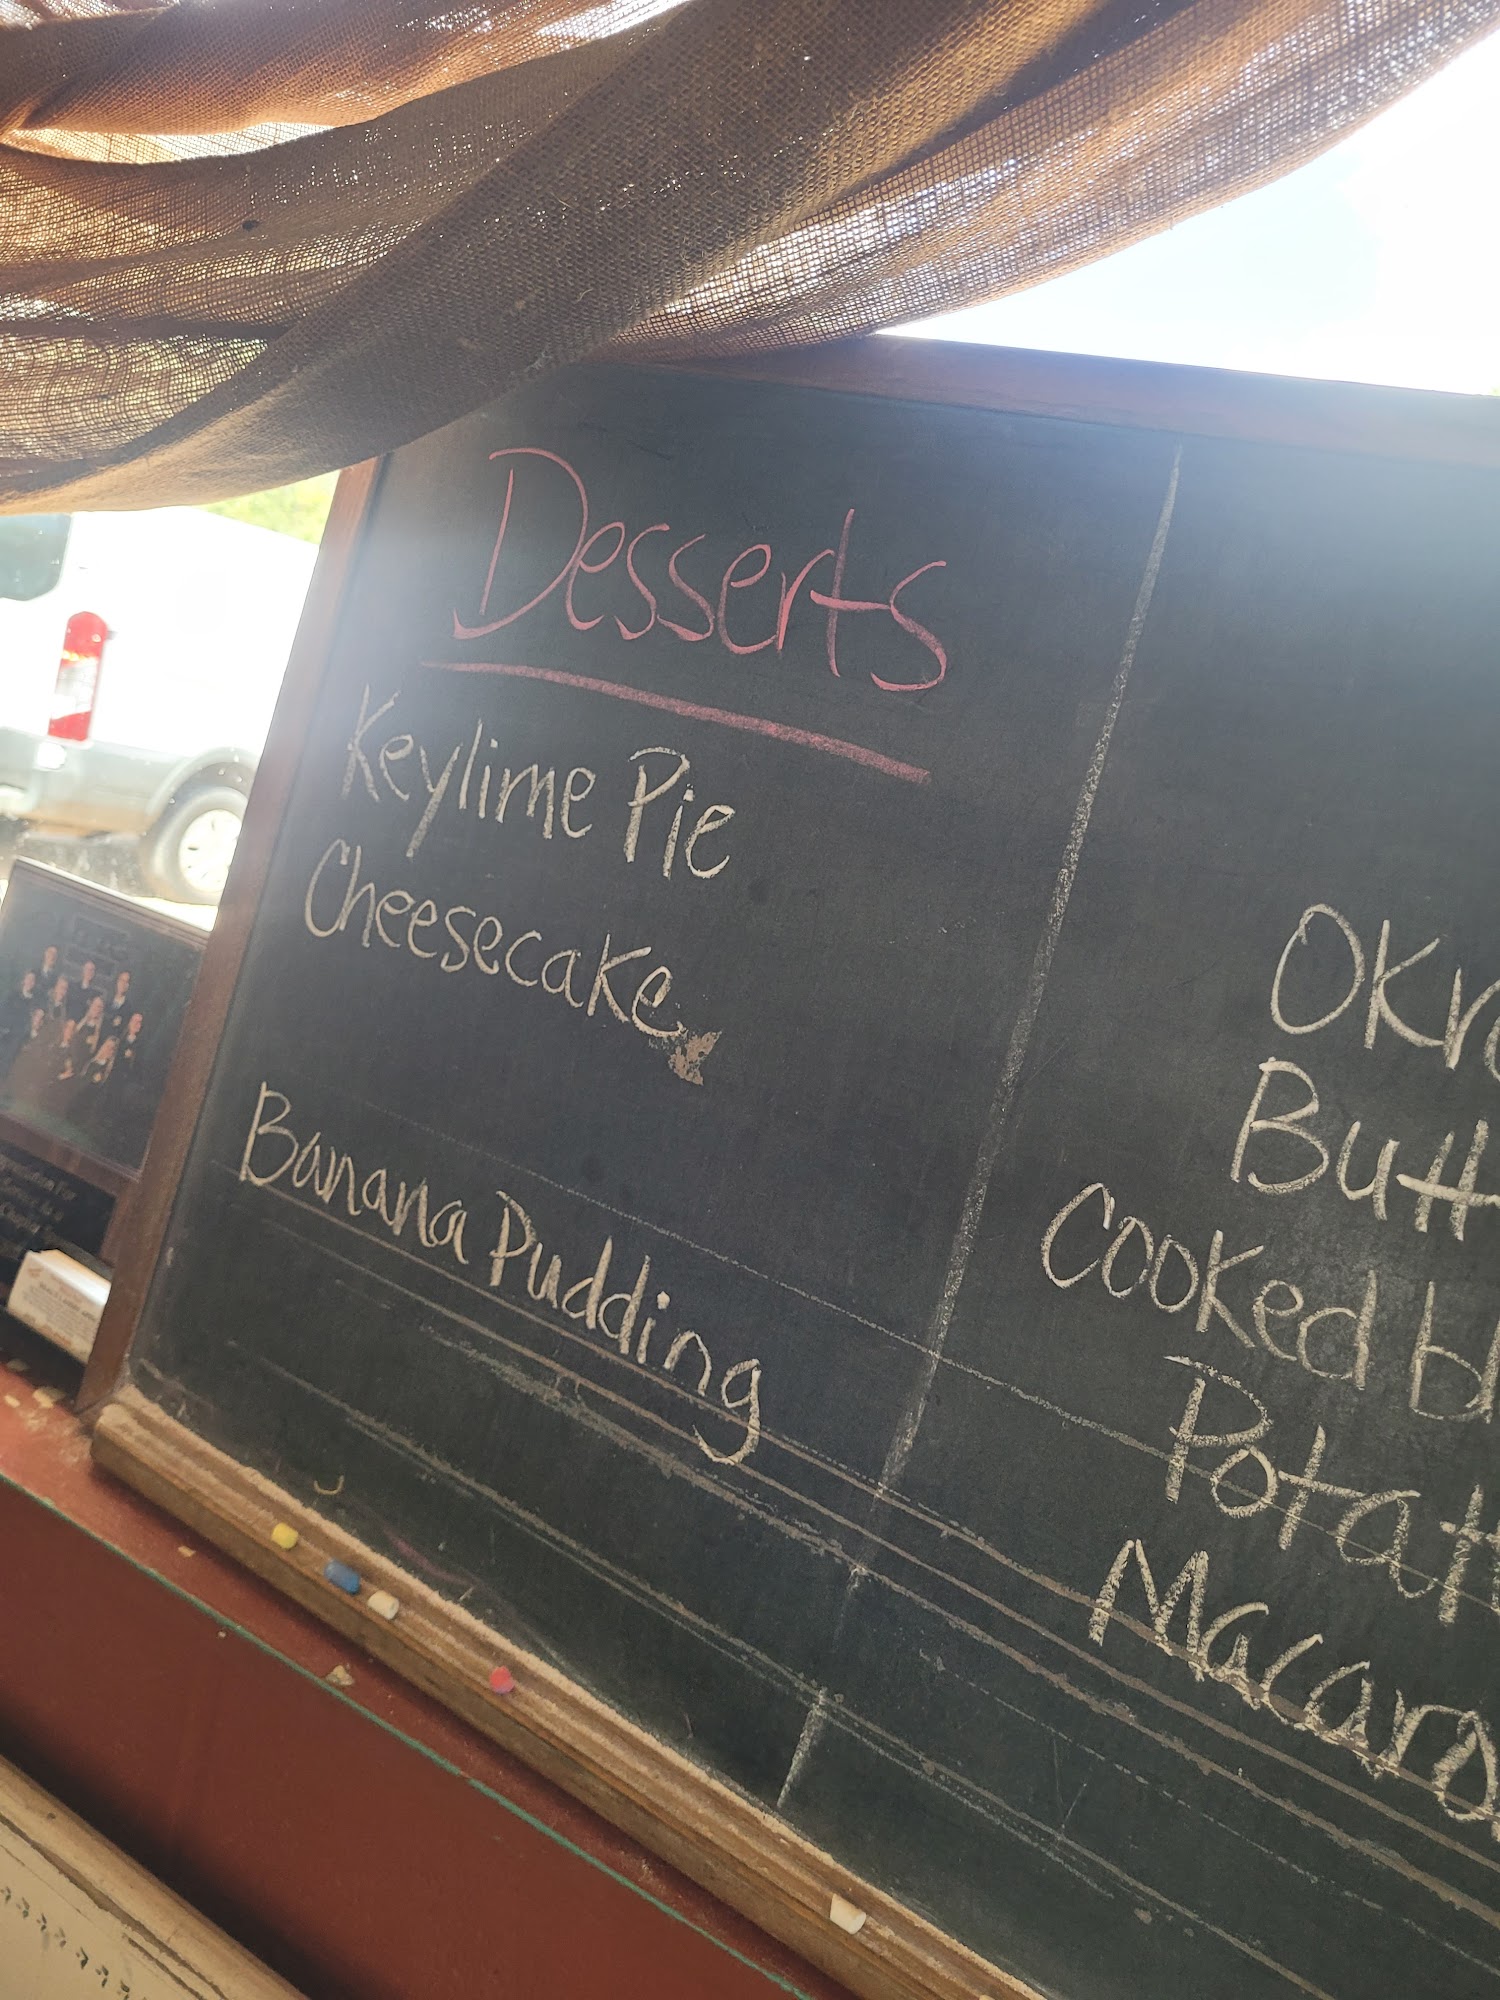 Desserts
Keylime Pie
Cheesecake
Banana Pudding
Okra
Butt
Cooked bl
Potat
Macaro